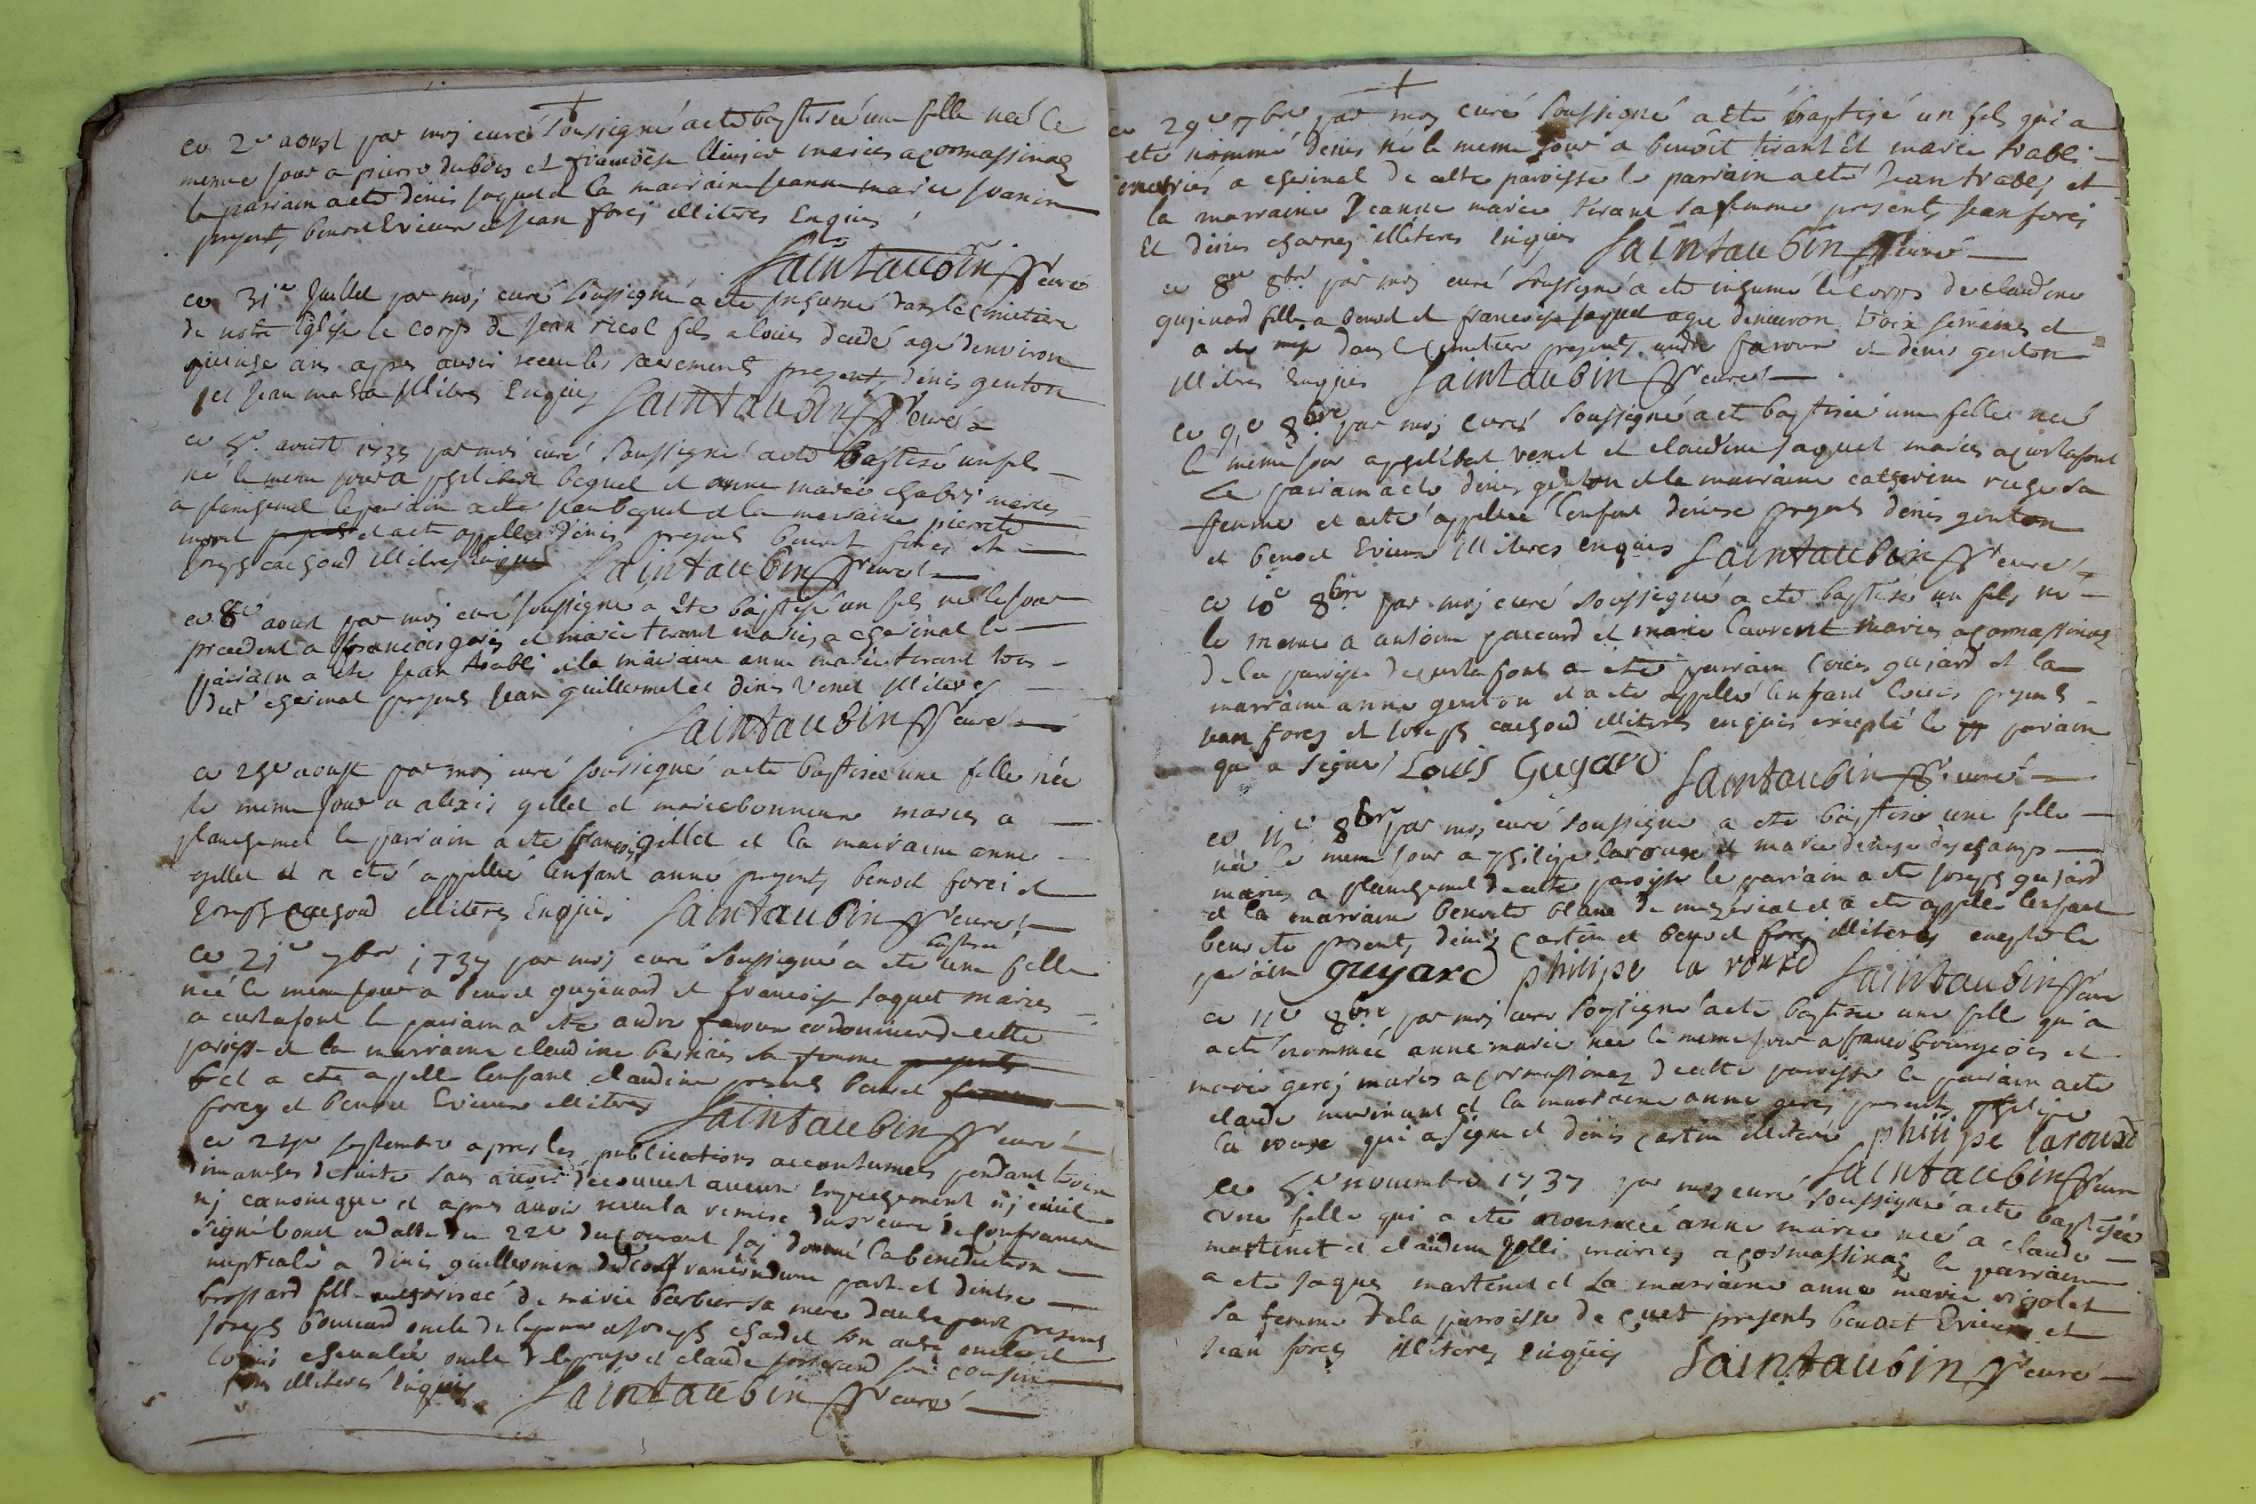 ce 2e aoust par moj curé soussigné a eté baptisée une fille neé le
meme jour a pierre dubois et francoise mariés a cormassinaz
le parrain a eté denis jaquet la marraine jeanne marie
presents benoit Evieux et jean forêj illiteres Enquis
Saintaubin curé
ce 31e Juillet par moj curé soussigné a eté inhumé dans le cimetiere
de notre Eglise le corps de jean ricol fils a louis decedé agé denviron
quinze ans apres avoir receu les sacrements presents denis genton
et jean illiteres Enquis Saintaubin curé
ce 5e aoust 1737 par moj curé soussigné a eté baptisé un fils
né le meme jour a philibert bequet et anne marie mariés
a planchemel le parrain a eté jean bequet et la marraine pierrete
morel et a eté appellé denis presents benoit forêj et
joseph cachoud illiteres Enquis Saintaubin curé
ce 8e aoust par moj curé soussigné a eté baptisé un fils né le jour
precedent a francois et marie tirant mariés a cherinal le
parrain a eté jean trabli et la marraine anne marie tirant tous
dud cherinal presents jean guillermet et denis venet illiteres
Saintaubin curé
ce aoust par moj curé soussigné a eté baptisée une fille née
le meme jour a alexis gillet et marie bonneur mariés a
planchemel le parrain a eté francois gillet et la marraine anne
gillet et a eté appellée lenfant anne presents benoit forêj et
joseph cachoud illiteres Enquis Saintaubin curé
ce 21e 7bre 1737 par moj curé soussigné a eté baptisée une fille
neé le meme jour a benoit gujenard et francoise jaquet mariés
a curtafont le parrain a eté andre favour cordonnier de cette
paroisse et la marraine claudine sa femme presents
et a eté appellé lenfant claudine presents benoit
forêj et benoit Evieux illiteres Saintaubin curé
ce septembre apres les publications accoutumées pendant trois
dimanches de suite sans avoir decouvert aucun empechement nj civil
nj canonique et apres avoir receu la remise du sr curé de confrancon
signé bonet en datte du 22e du courant jaj donné la benediction
nuptiale a denis guillermin dud confrancon dune part et denise
brossard fille authorisée de marie barbier sa mere dautre part presents
joseph bouvard oncle de lepoux et joseph chadel son autre oncle et
louis chevalier oncle de lepouse et claude josserand son cousin
tous illiteres Enquis Saintaubin curé
ce 29e 7bre par moj curé soussigné a eté baptizé un fils qui a
eté nommé denis né le meme jour a benoit tirant et marie trabli
mariés a cherinal de cette paroisse le parrain a eté jean trabli et
la marraine jeanne marie tirant sa femme presents jean forêj
et denis charnej illiteres Enquis Saintaubin curé
ce 8e 8bre par moj curé soussigné a eté inhumé le corps de claudine
gujenard fille a benoit et francoise jaquet agée denviron trois semaines et
a eté mise dans le cimetiere presents andre favour et denis genton
illiteres Enquis Saintaubin curé
ce 9e 8bre par moj curé soussigné a eté baptisée une fille neé
le meme jour a philibert venet et claudine jaquet mariés a curtafont
le parrain a eté denis genton et la marraine catherine sa
femme et a eté appellée lenfant denise presents denis genton
et benoit Evieux illiteres enquis Saintaubin curé
ce 10e 8bre par moj curé soussigné a eté baptisé un fils né
le meme a antoine paccard et marie laurent mariés a cormassinaz
de la paroisse de curtafont a eté parrain louis gujard et la
marraine anne genton et a eté appellé lenfant louis presents
jean forêj et joseph cachoud illiteres enquis excepté le parrain
qui a signé Louis Guyard Saintaubin curé
ce 11e 8bre par moj curé soussigné a eté baptisée une fille
née le meme jour a philipe larouse et marie denise deschamps
mariés a planchemel de cette paroisse le parrain a eté joseph gujard
et la marraine benoite blanc de mezeriat et a eté appellée lenfant
benoite presents denis cartin et benoit forêj illiteres excepté le
parrain guyard philipe la rouxe Saintaubin curé
ce 11e 8bre par moj curé soussigné a eté baptisée une fille qui a
a eté nommée anne marie née le meme jour a francois bourgeois et
marie gerej mariés a cormassinaz de cette paroisse le parrain a eté
claude morinand et la marraine anne gerej presents philipe
la rouxe qui a signé et denis cartin illiteré philipe larouxe
Saintaubin curé
ce 5e novembre 1737 par moj curé soussigné a eté baptisée
une fille qui a eté nommée anne marie neé a claude
martinet et claudine jolli mariés a cormassinaz le parrain
a eté jaques martinet et la marraine anne marie rigolet
sa femme de la parroisse de cuet presents benoit Evieux et
jean forêj illiteres Enquis Saintaubin curé